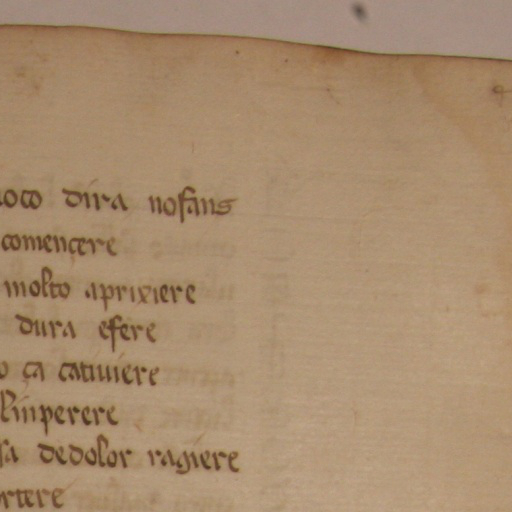 dira nofans
començere
molto aprixiere
dura efere
ça catiuiere
l'inperere
dedolor ragiere